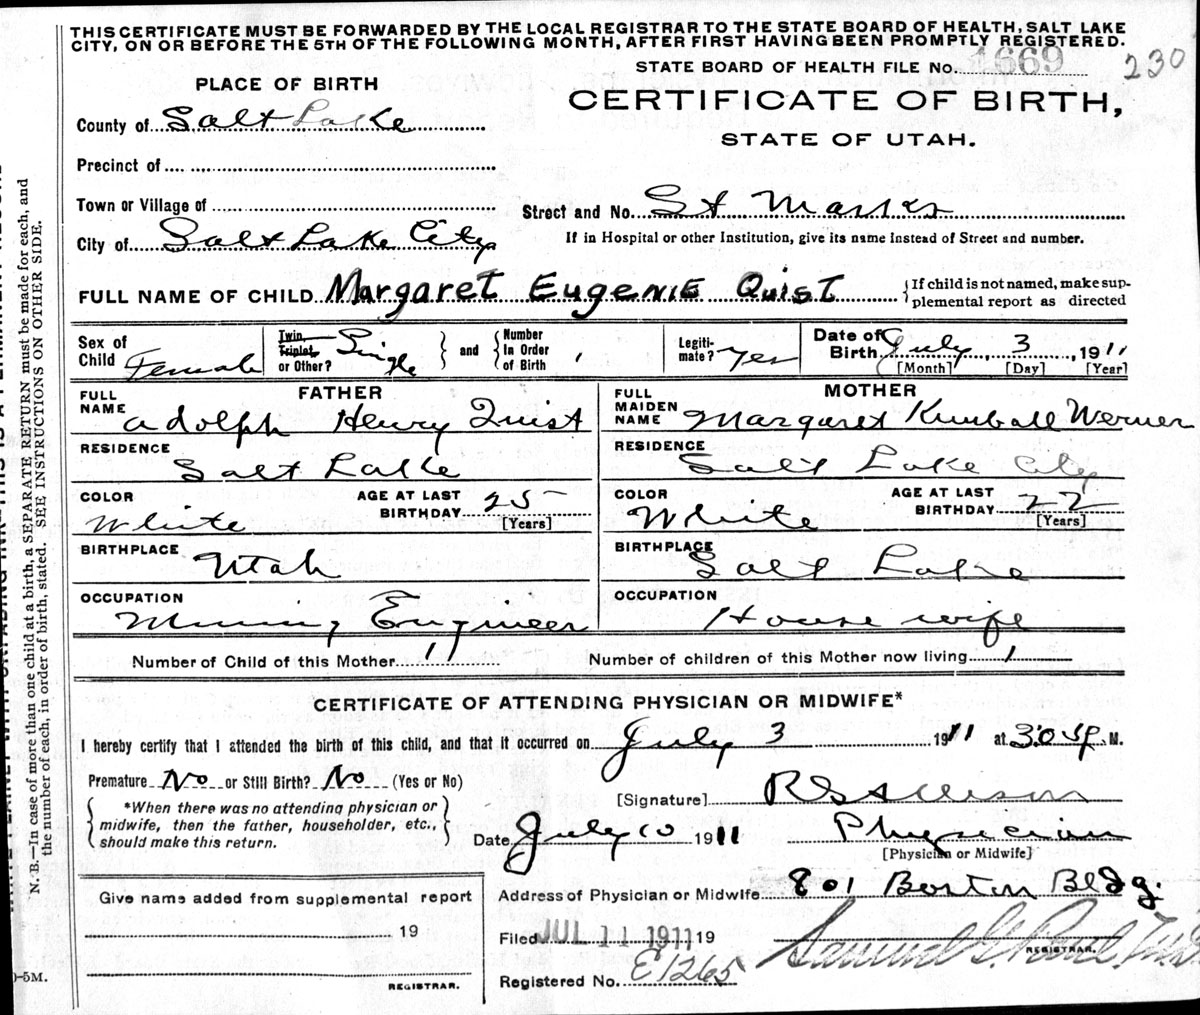 THIS CERTIFICATE MUST BE FORWARDED BY THE LOCAL REGISTRAR TO THE STATE BOARD OF HEALTH, SALT LAKE
CITY, ON OR BEFORE THE 5TH OF THE FOLLOWING MONTH, AFTER FIRST HAVING BEEN PROMPTLY REGISTERED.
STATE BOARD OF HEALTH FILE No. 1669 230
PLACE OF BIRTH
CERTIFICATE OF BIRTH,
STATE OF UTAH.
County of Salt Lake
Precinct of
Town or Village of
Street and No. St Marks
City of Salt Lake City
If in Hospital or other Institution, give its name instead of Street and number.
FULL NAME OF CHILD Margaret Eugenie Quist
If child is not named, make sup-
plemental report as directed
Sex of Child Female
Twin, Triplet, or Other? Single
and Number In Order of Birth
Legiti-mate? Yes
Date of Birth July 3, 1911
[Month] [Day] [Year]
FATHER
MOTHER
FULL NAME Adolph Henry Quist
FULL MAIDEN NAME Margaret Kimball Werner
RESIDENCE Salt Lake
RESIDENCE Salt Lake City
COLOR White AGE AT LAST BIRTHDAY 25 [Years]
COLOR White AGE AT LAST BIRTHDAY 22 [Years]
BIRTHPLACE Utah
BIRTHPLACE Salt Lake
OCCUPATION Mining Engineer
OCCUPATION House wife
Number of Child of this Mother 1
Number of children of this Mother now living 1
CERTIFICATE OF ATTENDING PHYSICIAN OR MIDWIFE*
I hereby certify that I attended the birth of this child, and that it occurred on July 3 1911 at 3.05 P. M.
Premature No or Still Birth? No (Yes or No)
*When there was no attending physician or
midwife, then the father, householder, etc.,
should make this return.
[Signature] R S Allison
Date July 10 1911 Physician
[Physician or Midwife]
Address of Physician or Midwife 801 Boston Bldg.
Give name added from supplemental report
19
REGISTRAR.
Filed JUL 11 1911 19
Samuel G. Paul
REGISTRAR.
Registered No. E1265
N. B.—In case of more than one child at a birth, a SEPARATE RETURN must be made for each, and
the number of each, in order of birth, stated. SEE INSTRUCTIONS ON OTHER SIDE.
-5M.